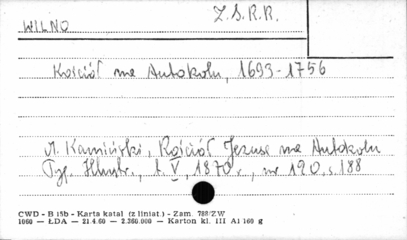 WILNO
Z.S.R.R.
Kościół na Antokolu, 1693-1756
A. Kamiński, Kościół Jezusa na Antokolu
Tyg. Illustr., t. V, 1870 r., nr 120, s. 188
CWD - B 15b - Karta katal (z liniat.) - Zam. 788/ZW
1060 — ŁDA — 21.4.60 — 2.360.000 — Karton kl. III A1 160 g